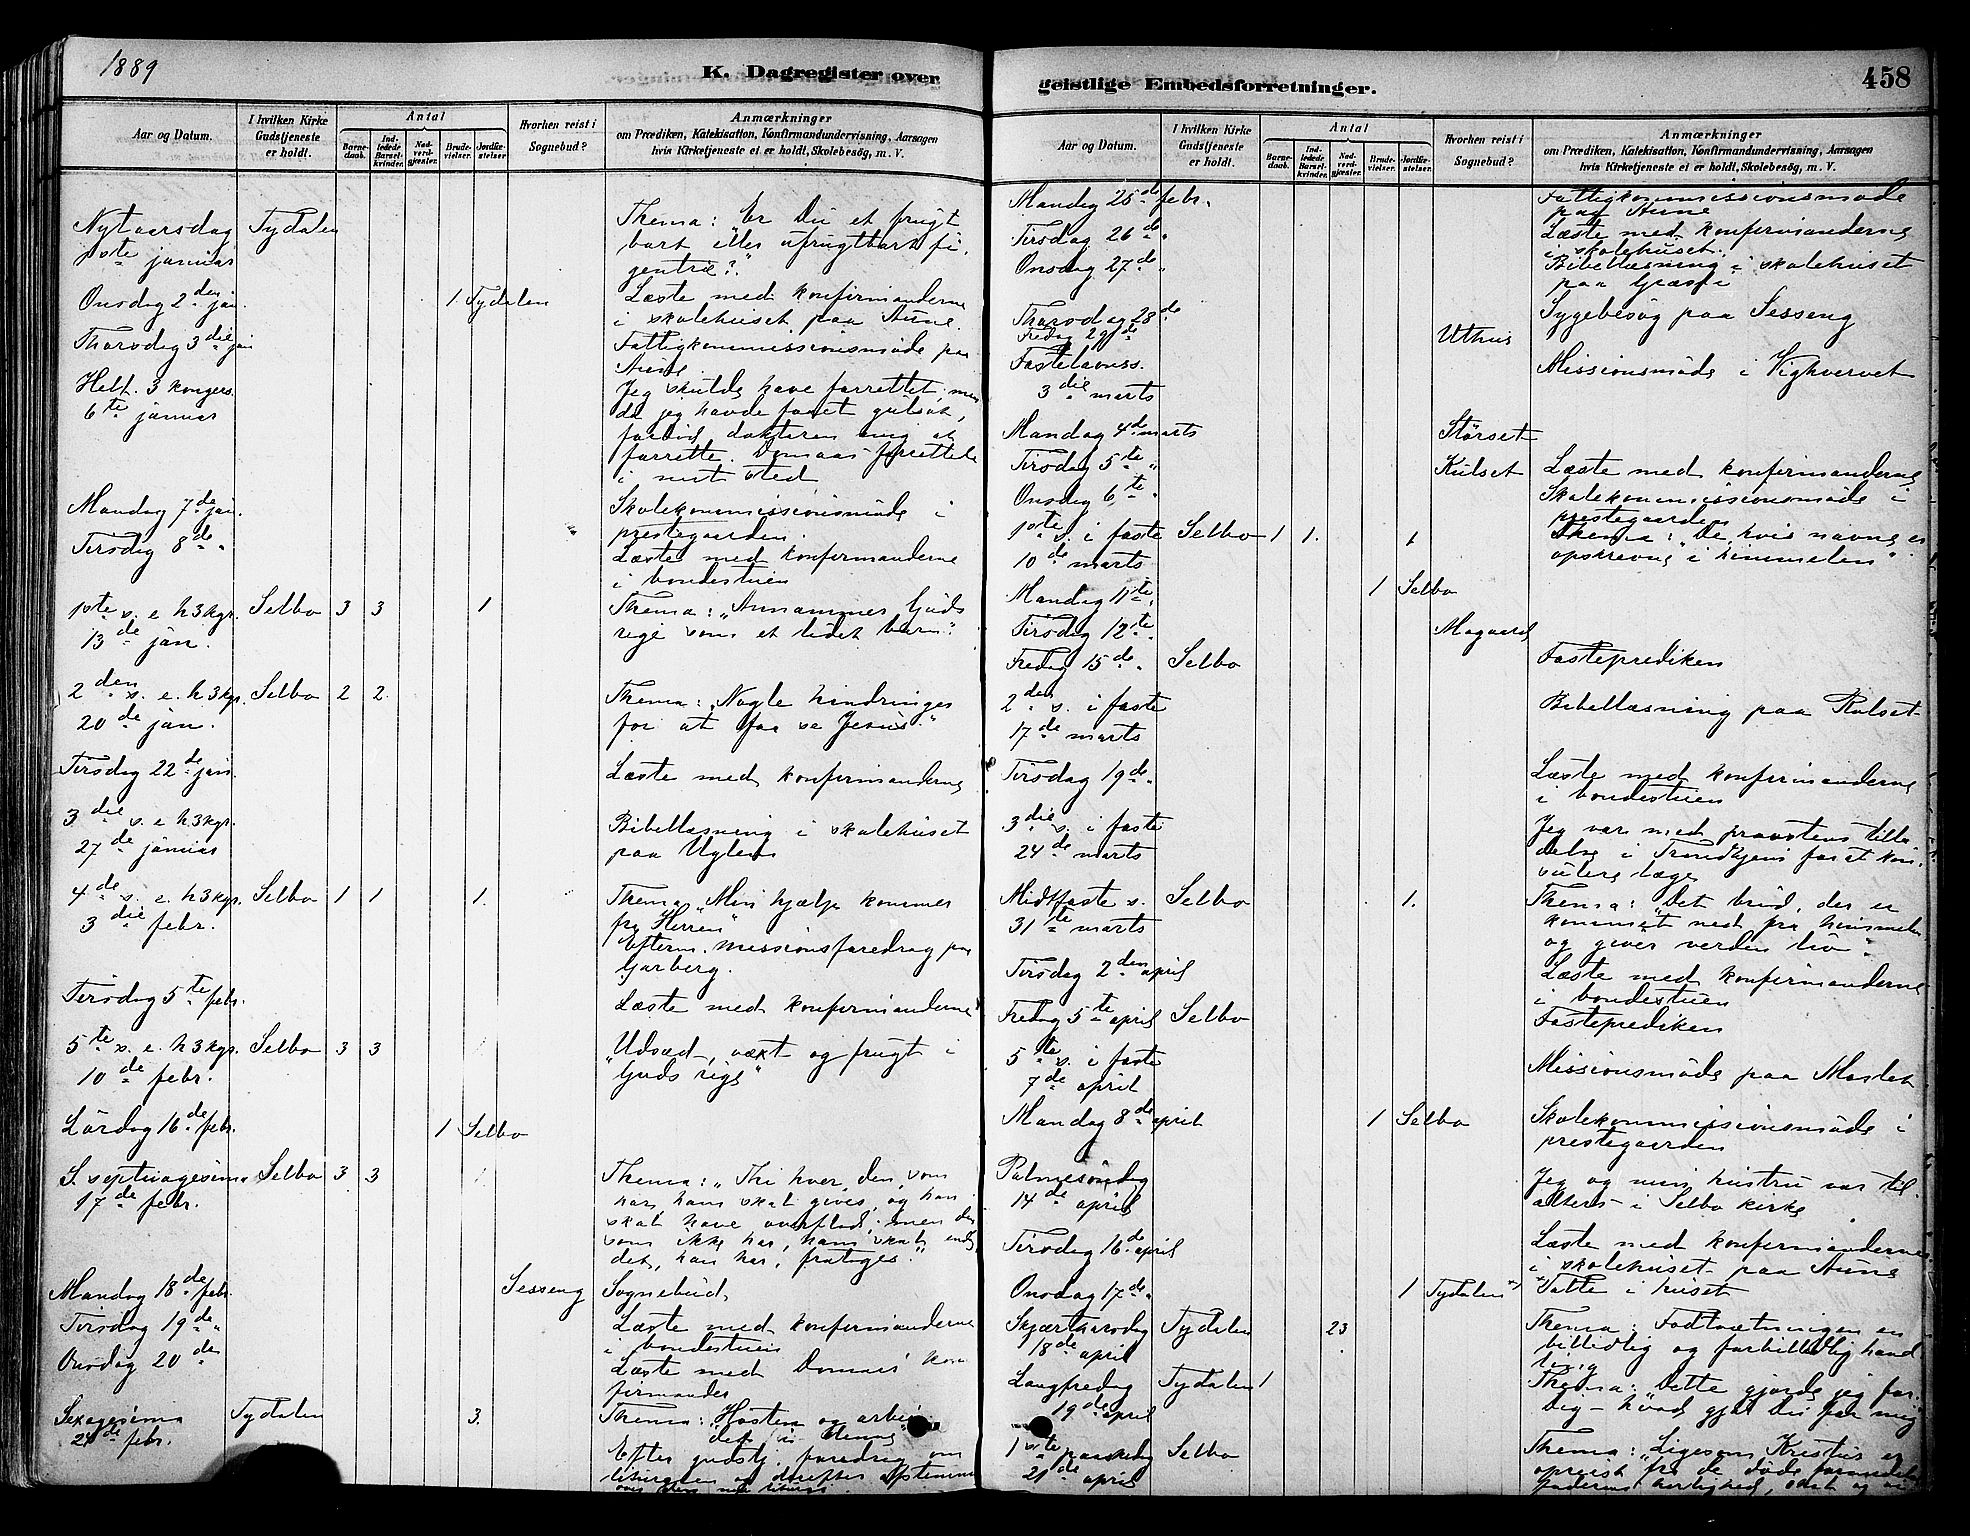 1889
K. Dagregister over
Aar og Datum.
I hvilken Kirke Gudstjeneste er holdt.
Antal
Barnedaab.
Indledede Barselkvinder.
Nadverdgjester.
Brudevielser.
Jordfæstelser.
Hvorhen reist i Sognebud?
Anmærkninger
om Prædiken, Katekisation, Konfirmandundervisning, Aarsagen
hvis Kirketjeneste ei er holdt, Skolebesög, m. V.
Nytaarsdag Tydalen Thema: "Er Du et frugt
1ste januar bart eller ufrugtbart fi
gentræ?"
Onsdag 2den jan. 1 Tydalen Læste med konfirmanderne
i skolehuset paa Aune.
Thorsdag 3die jan Fattigkommissionsmöde paa
Aune.
Hell. 3 kongers Jeg skulde have forrettet, men
6te januar da jeg havde faaet gulsot,
forbød doktoren mig at
forrette. Domaas forrettede
i mit sted
Mandag 7de jan. Skolekommissionsmöde i
prestegaarden.
Tirsdag 8de " Læste med konfirmanderne
i bondestuen
1ste s. e. h 3 kgr. Selbo 3 3 1 Thema: "Annammer Guds
13de jan. rige som et lidet barn."
2den s. e. h 3 kgr. Selbo 2 2 Thema: "Nogle hindringer
20de jan. for at faa se Jesus."
Tirsdag 22de jan. Læste med konfirmanderne
3die s. e. h 3 kgr. Bibellæsning i skolehuset
27de januar paa Uglen
4de s. e. h 3 kgr. Selbo 1 1 1. Thema "Min hjælp kommer
3die febr. fra Herren"
Efterm. missionsforedrag paa
Garberg.
Tirsdag 5te febr. Læste med konfirmanderne
5te s. e. h 3 kgr. Selbo 3 3 "Udsæd, vaxt og frugt i
10de febr. Guds rige"
Lördag 16de febr. 1 Selbo
S. septuagesima Selbo 3 3 Thema: "Thi hver, den, som
17de febr. har, ham skal gives, og han
skal have overflod; men den
som ikke har, ham skal endog
det, han har, fratages."
Mandag 18de febr. Sesseng Sognebud,
Tirsdag 19de " Læste med konfirmanderne
i bondestuen
Onsdag 20de Læste med Domaas' kon
firmander
Sexagesima Tydalen 3. Thema: Hosten og arbei
24de febr. derne
Efter gudstj. foredrag om
liturgien og derefter afstemning
geistlige Embedsforretninger.
458
Aar og Datum.
I hvilken Kirke Gudstjeneste er holdt.
Antal
Barnedaab.
Indledede Barselkvinder.
Nadverdgjester.
Brudevielser.
Jordfæstelser.
Hvorhen reist i Sognebud?
Anmærkninger
om Prædiken, Katekisation, Konfirmandundervisning, Aarsagen
hvis Kirketjeneste ei er holdt, Skolebesög, m. V.
Mandag 25de febr. Fattigkommissionsmöde
paa Aune
Tirsdag 26de " Læste med konfirmanderne
i skolehuset.
Onsdag 27de " Bibellæsning i skolehuset
paa Græsli
Thorsdag 28de Sygebesög paa Sesseng
Fredag Uthus
Fastelavnss. Missionsmöde i Vighvervet
3die marts
Mandag 4de marts Störset
Tirsdag 5te " Kulset Læste med konfirmanderne
Onsdag 6te " Skolekommissionsmöde i
prestegaarden
1ste s. i faste Selbo 1 1. 1 Thema: "De, hvis navne er
10de marts opskrevne i himmelen"
Mandag 11te " 1 Selbo
Tirsdag 12te " Mogaard
Fredag 15de " Selbo Fasteprediken
2den s. i faste Bibellæsning paa Kulset
17de marts
Tirsdag 19de " Læste med konfirmanderne
i bondestuen
3die s. i faste Jeg var med provstens tilla
24de marts delse i Trondhjem for at kon
sulere læge
Midtfaste s. Selbo 1. Thema: "Det bröd, der er
31te marts kommet ned fra himmelen
og giver verden liv"
Tirsdag 2den april Læste med konfirmanderne
i bondestuen
Fredag 5te april Selbo Fasteprediken
5te s. i faste Missionsmöde paa Moslet
7de april
Mandag 8de april 1 Selbo Skolekommissionsmöde i
prestegaarden
Palmesöndag Jeg og min hustru var til
14de april alters i Selbo kirke
Tirsdag 16de april Læste med konfirmanderne
i skolehuset paa Aune
Onsdag 17de " 1 Tydalen *) *) Vatte i huset
Skjærthorsdag Tydalen 23 Thema: Fodtvætningen en
18de april billedlig og forbilledlig hand
ling
Langfredag Tydalen 1 Thema: "Dette gjorde jeg for
19de april Dig – hvad gjør Du for mig"
1ste paaskedag Selbo Thema: "Ligesom Kristus er
21de april opreist fra de døde formedelst
faderens herlighed,